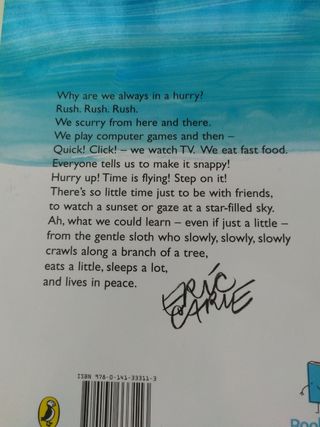 Why are we always in a hurry?
Rush. Rush. Rush.
We scurry from here and there.
We play computer games and then –
Quick! Click! – we watch TV. We eat fast food.
Everyone tells us to make it snappy!
Hurry up! Time is flying! Step on it!
There's so little time just to be with friends,
to watch a sunset or gaze at a star-filled sky.
Ah, what we could learn – even if just a little –
from the gentle sloth who slowly, slowly, slowly
crawls along a branch of a tree,
eats a little, sleeps a lot,
and lives in peace.
ERIC
CARLE
ISBN 978-0-141-33311-3